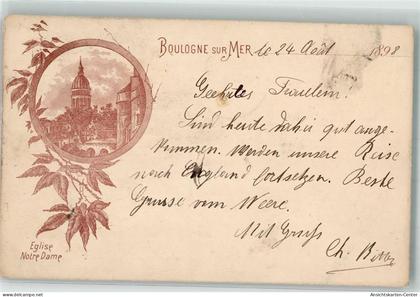 BOULOGNE SUR MER le 24 Août 1898
Geehrtes Fraülein!
Sind heute dahir gut ange-
kommen. Werden unsere Reise
nach England fortsetzen. Beste
Grüsse vom Meere.
Mit Gruss
Ch.
Eglise
Notre Dame
www.ansichtskartenversand.com
Ansichtskarten-Center